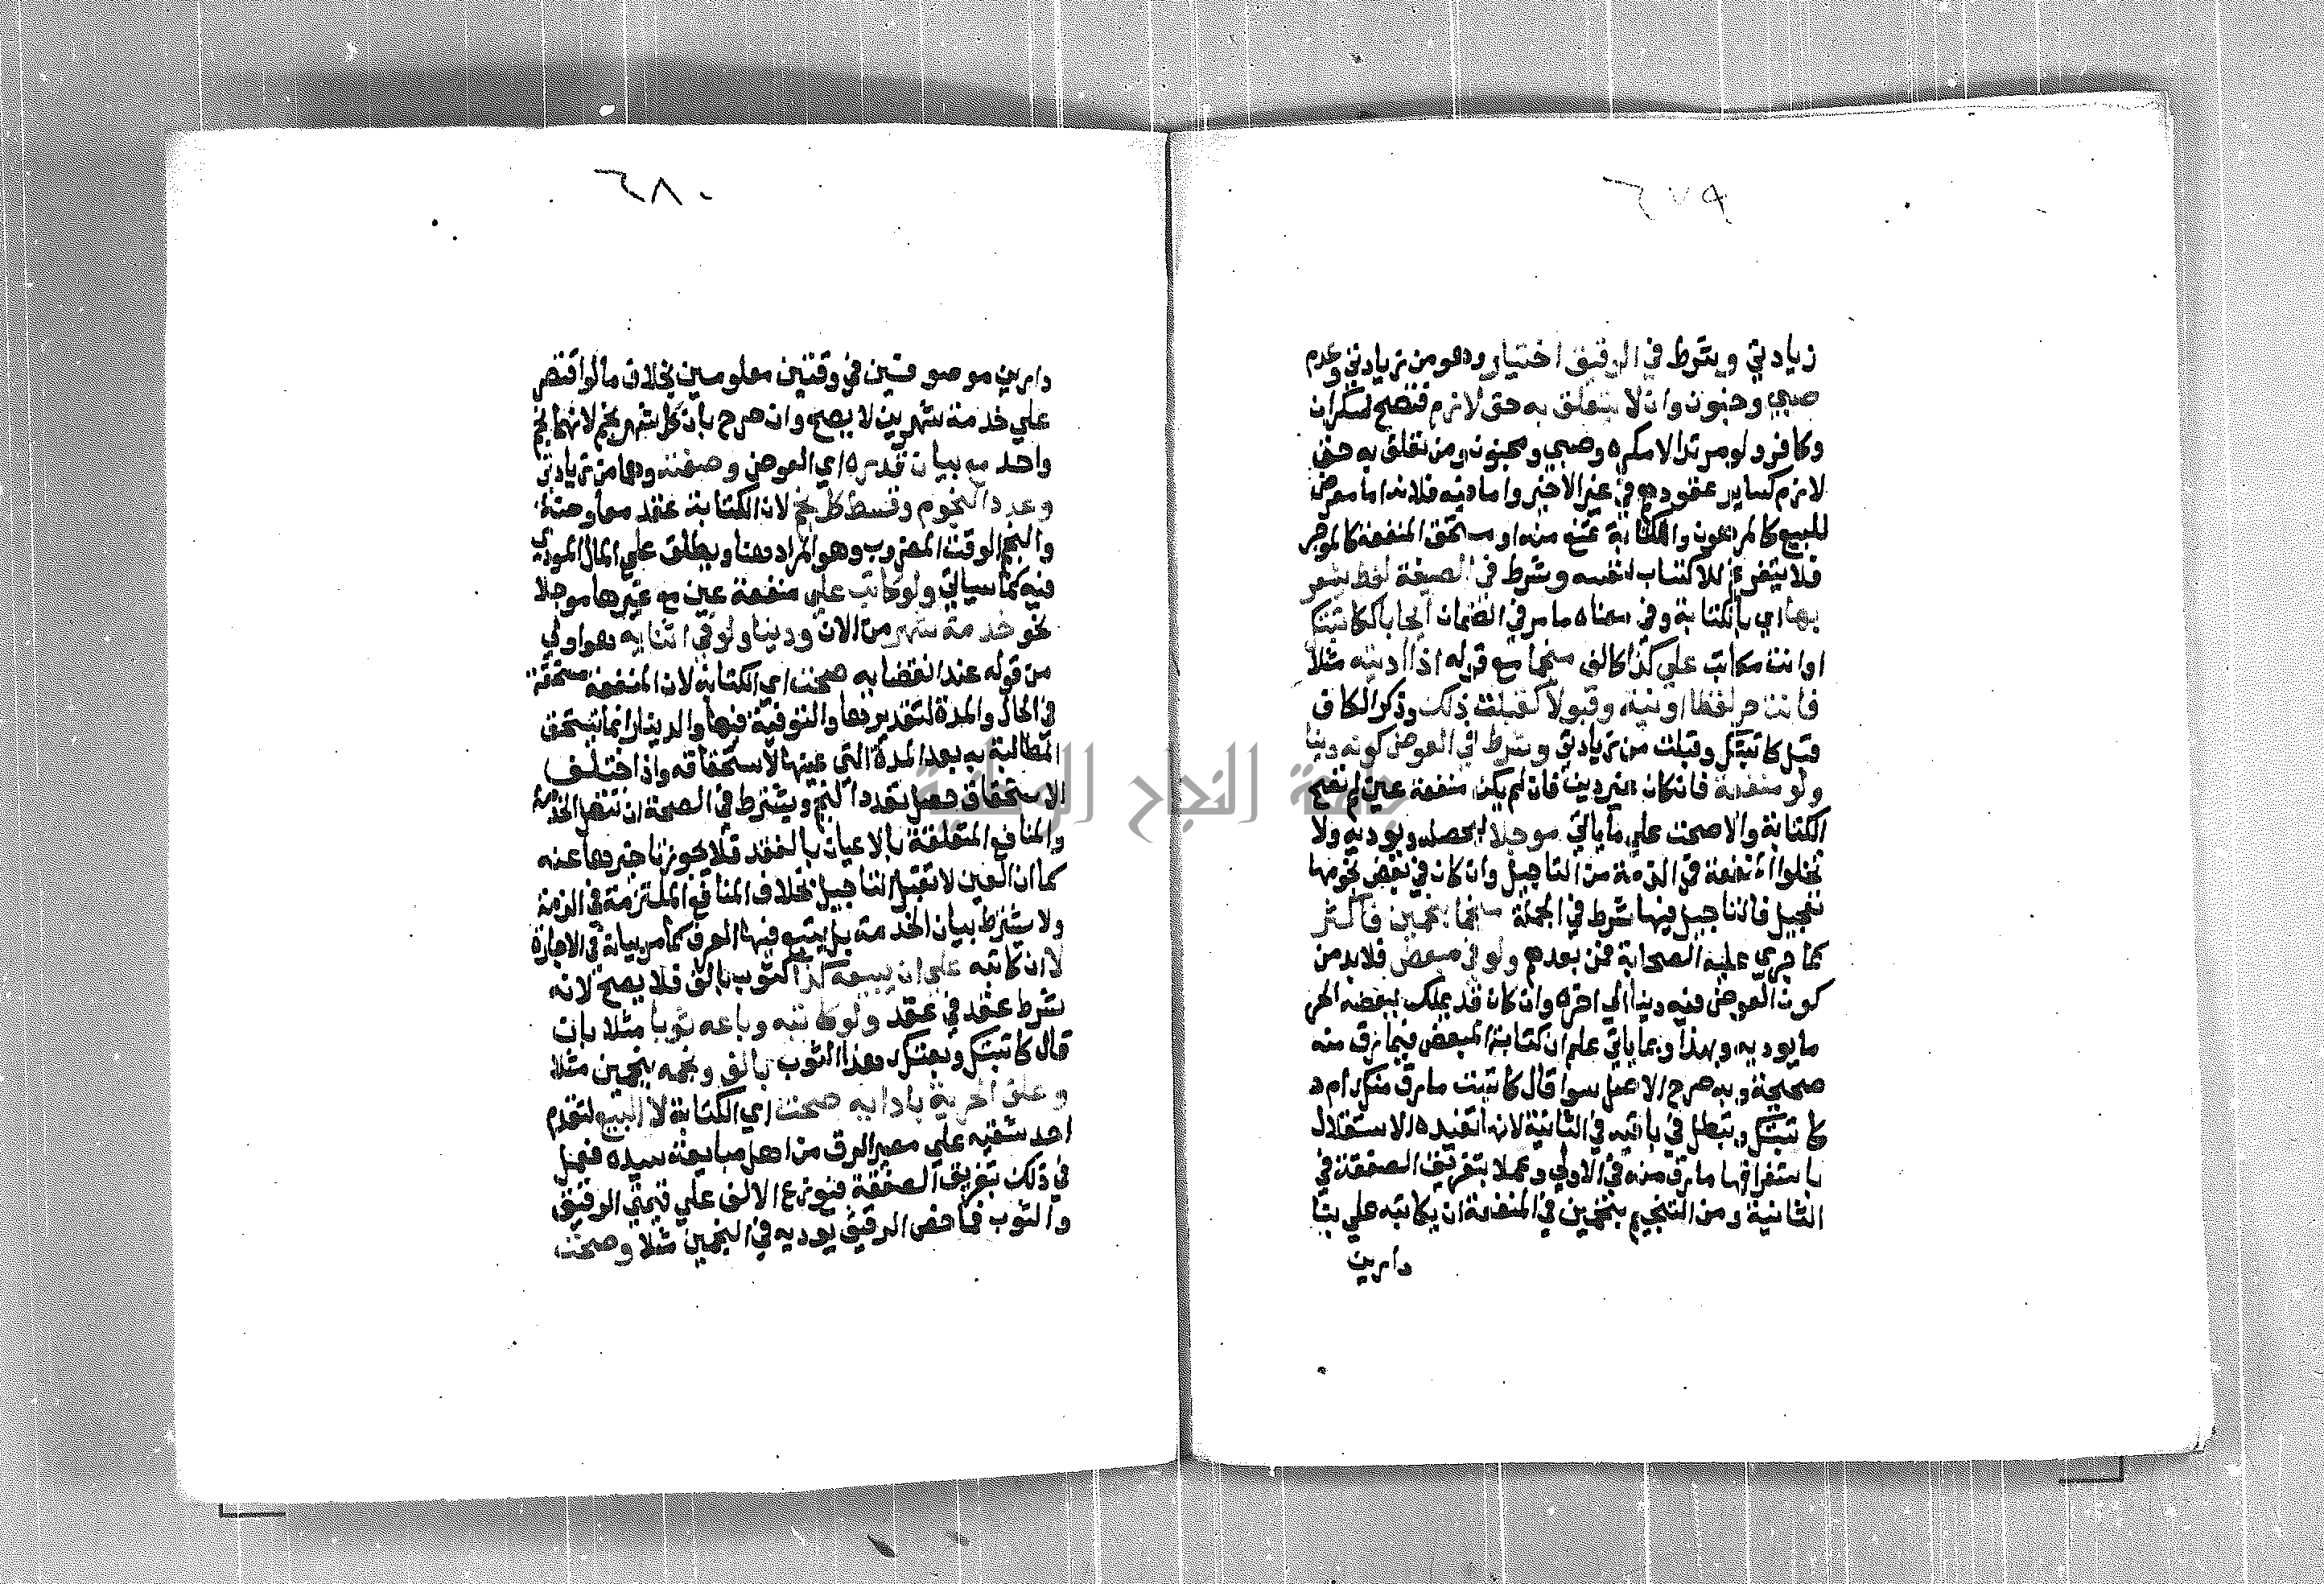 ٦٧٩
زيادتي ويشترط في الرقيق اختيار وهو من زيادتي وعدم
صبي وجنون وان لا يتعلق به حق لازم فتصح لسكران
وكافر ولو مرتدا لا مكره وصبي ومجنون ومن تعلق به حق
لازم كساير عقودهم في غير الاخير واما فيه فلانه اما معرض
للبيع كالمرهون والكتابة تمنع منه او مستحق المنفعة كالموجر
فلا يتفرغ للاكتساب لنفسه وشرط في الصيغة لفظ يشعر
بها اي بالكتابة وفي معناه ما مر في الضمان ايجابا ككاتبتك
او انت مكاتب علي كذا كالف منجما مع قوله اذا اديته مثلا
فانت حر لفظا او نية وقبولا كقبلت ذلك وذكر الكاف
قبل كاتبتك وقبلت من زيادتي وشرط في العوض كونه دينا
ولو منفعة فان كان غير دين فان لم يكن منفعة عين لم تصح
الكتابة والا صحت علي ما ياتي موجلا ليحصله ويوديه ولا
تخلوا المنفعة في الذمة من التاجيل وان كان في بعض نجومها
تعجيل فالتاجيل فيها شرط في الجملة منجما بنجمين فاكثر
كما جري عليه الصحابة فمن بعدهم ولو في مبعض فلا بد من
كون العوض فيه دينا الي اخره وان كان قد يملك ببعضه الحر
ما يوديه وبهذا وبما ياتي علم ان كتابة المبعض فيما رق منه
صحيحة وبه صرح الاصل سوا قال كاتبت ما رق منك ام
كاتبتك وتبطل في باقيه في الثانية لانها تفيده الاستقلال
باستغراقها ما رق منه في الاولي وعملا بتفريق الصفقة في
الثانية ومن التنجيم بنجمين في المنفعة ان يكاتبه علي بنا
دارين
٦٨٠
دارين موصوفتين في وقتين معلومين بخلاف ما لو اقتصر
علي خدمة شهرين لا يصح وان صرح بان كل شهر نجم لانهما نجم
واحد مع بيان قدره اي العوض وصفته وهما من زيادتي
وعدد النجوم وقسط كل نجم لان الكتابة عقد معاوضة
والنجم الوقت المضروب وهو المراد هنا ويطلق علي المال المودي
فيه كما سياتي ولو كاتب علي منفعة عين مع غيرها موجلا
نحو خدمة شهر من الان ودينار ولو في اثنايه هو اولي
من قوله عند انقضايه صحت اي الكتابة لان المنفعة مستحقة
في الحال والمدة لتقديرها والتوفية فيها والدينار انما تستحق
المطالبة به بعد المدة التي عينها لاستحقاقه واذا اختلف
الاستحقاق حصل تعدد النجم ويشترط في الصحة ان تتصل الخدمة
والمنافع المتعلقة بالاعيان بالعقد فلا يجوز تاخيرها عنه
كما ان العين لا تقبل التاجيل بخلاف المنافع الملتزمة في الذمة
ولا يشترط بيان الخدمة بل يتبع فيها العرف كما مر بيانه في الاجارة
لا ان كاتبه علي ان يبيعه كذا كثوب بالف فلا يصح لانه
شرط عقد في عقد ولو كاتبه وباعه ثوبا مثلا بان
قال كاتبتك وبعتك هذا الثوب بالف ونجمه بنجمين مثلا
وعلق الحرية بادايه صحت اي الكتابة لا البيع لتقدم
احد شقيه علي مصير الرق من اهل مبايعة سيده فعمل
في ذلك بتفريق الصفقة فيوزع الالف علي قيمتي الرقيق
والثوب فما خص الرقيق يوديه في النجمين مثلا وصحت
جامعة النجاح الوطنية